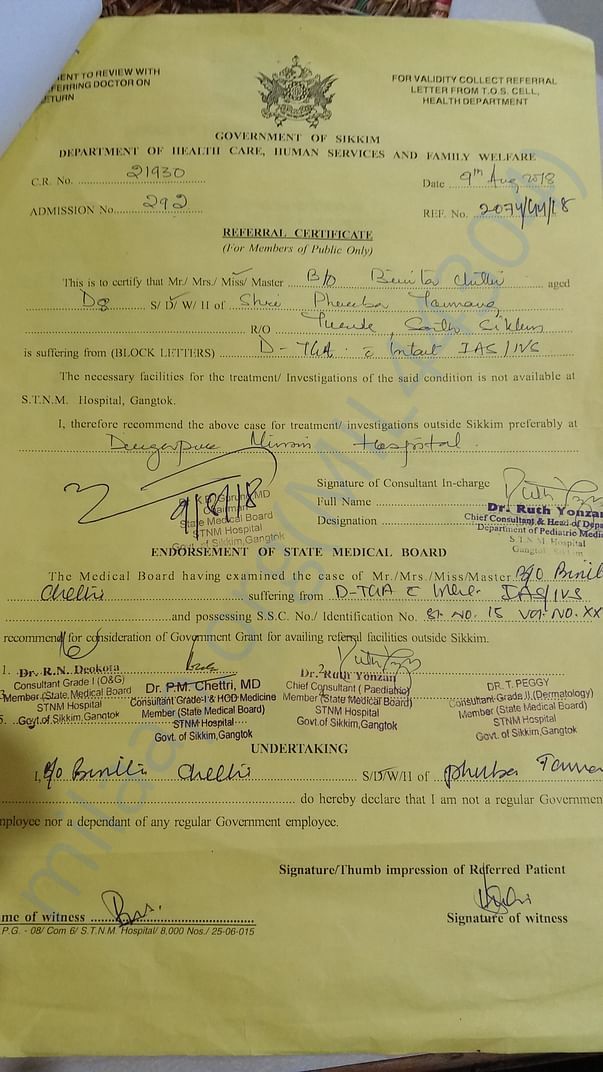 ENT TO REVIEW WITH
FERRING DOCTOR ON
ETURN
FOR VALIDITY COLLECT REFERRAL
LETTER FROM T.O.S. CELL,
HEALTH DEPARTMENT
GOVERNMENT OF SIKKIM
DEPARTMENT OF HEALTH CARE, HUMAN SERVICES AND FAMILY WELFARE
C.R. No. 21930
Date 9th Aug 2018
ADMISSION No. 292
REF. No. 2074/GH/18
REFERRAL CERTIFICATE
(For Members of Public Only)
This is to certify that Mr./ Mrs./ Miss/ Master B/O Binita Chettri aged
D8 S/ D/ W/ H of Shre Phurba Tamang
R/O South Sikkim
is suffering from (BLOCK LETTERS) D-TGA c Intact IAS/IVS
The necessary facilities for the treatment/ Investigations of the said condition is not available at
S.T.N.M. Hospital, Gangtok.
I, therefore recommend the above case for treatment/ investigations outside Sikkim preferably at
Durgapur Mission Hospital.
9/8/18
MD
Chairman
State Medical Board
STNM Hospital
Govt. of Sikkim, Gangtok
Signature of Consultant In-charge
Full Name
Designation
Dr. Ruth Yonzan
Chief Consultant & Head of Depa
Department of Pediatric Medi
S.T.N.M. Hospital
Gangtok, Sikkim
ENDORSEMENT OF STATE MEDICAL BOARD
The Medical Board having examined the case of Mr./Mrs./Miss/Master B/O Binit
Chettri suffering from D-TGA c IAS/IVS
and possessing S.S.C. No./ Identification No. Sl. NO. 15 Vol. NO. XX
recommend for consideration of Government Grant for availing referral facilities outside Sikkim.
1. Dr. R.N. Deokota
Consultant Grade I (O&G)
Member (State Medical Board
STNM Hospital
Govt. of Sikkim, Gangtok
Dr. P.M. Chettri, MD
Consultant Grade-I & HOD Medicine
Member (State Medical Board)
STNM Hospital
Govt. of Sikkim, Gangtok
2. Dr. Ruth Yonzan
Chief Consultant (Paediatric)
Member (State Medical Board)
STNM Hospital
Govt. of Sikkim, Gangtok
DR. T. PEGGY
Consultant Grade II, (Dermatology)
Member (State Medical Board)
STNM Hospital
Govt. of Sikkim, Gangtok
5.
UNDERTAKING
I, B/o Binita Chettri S/D/W/H of Phurba Taman
do hereby declare that I am not a regular Governmen
mployee nor a dependant of any regular Government employee.
Signature/Thumb impression of Referred Patient
me of witness
Signature of witness
P.G. - 08/ Com 6/ S.T.N.M. Hospital/ 8,000 Nos./ 25-06-015